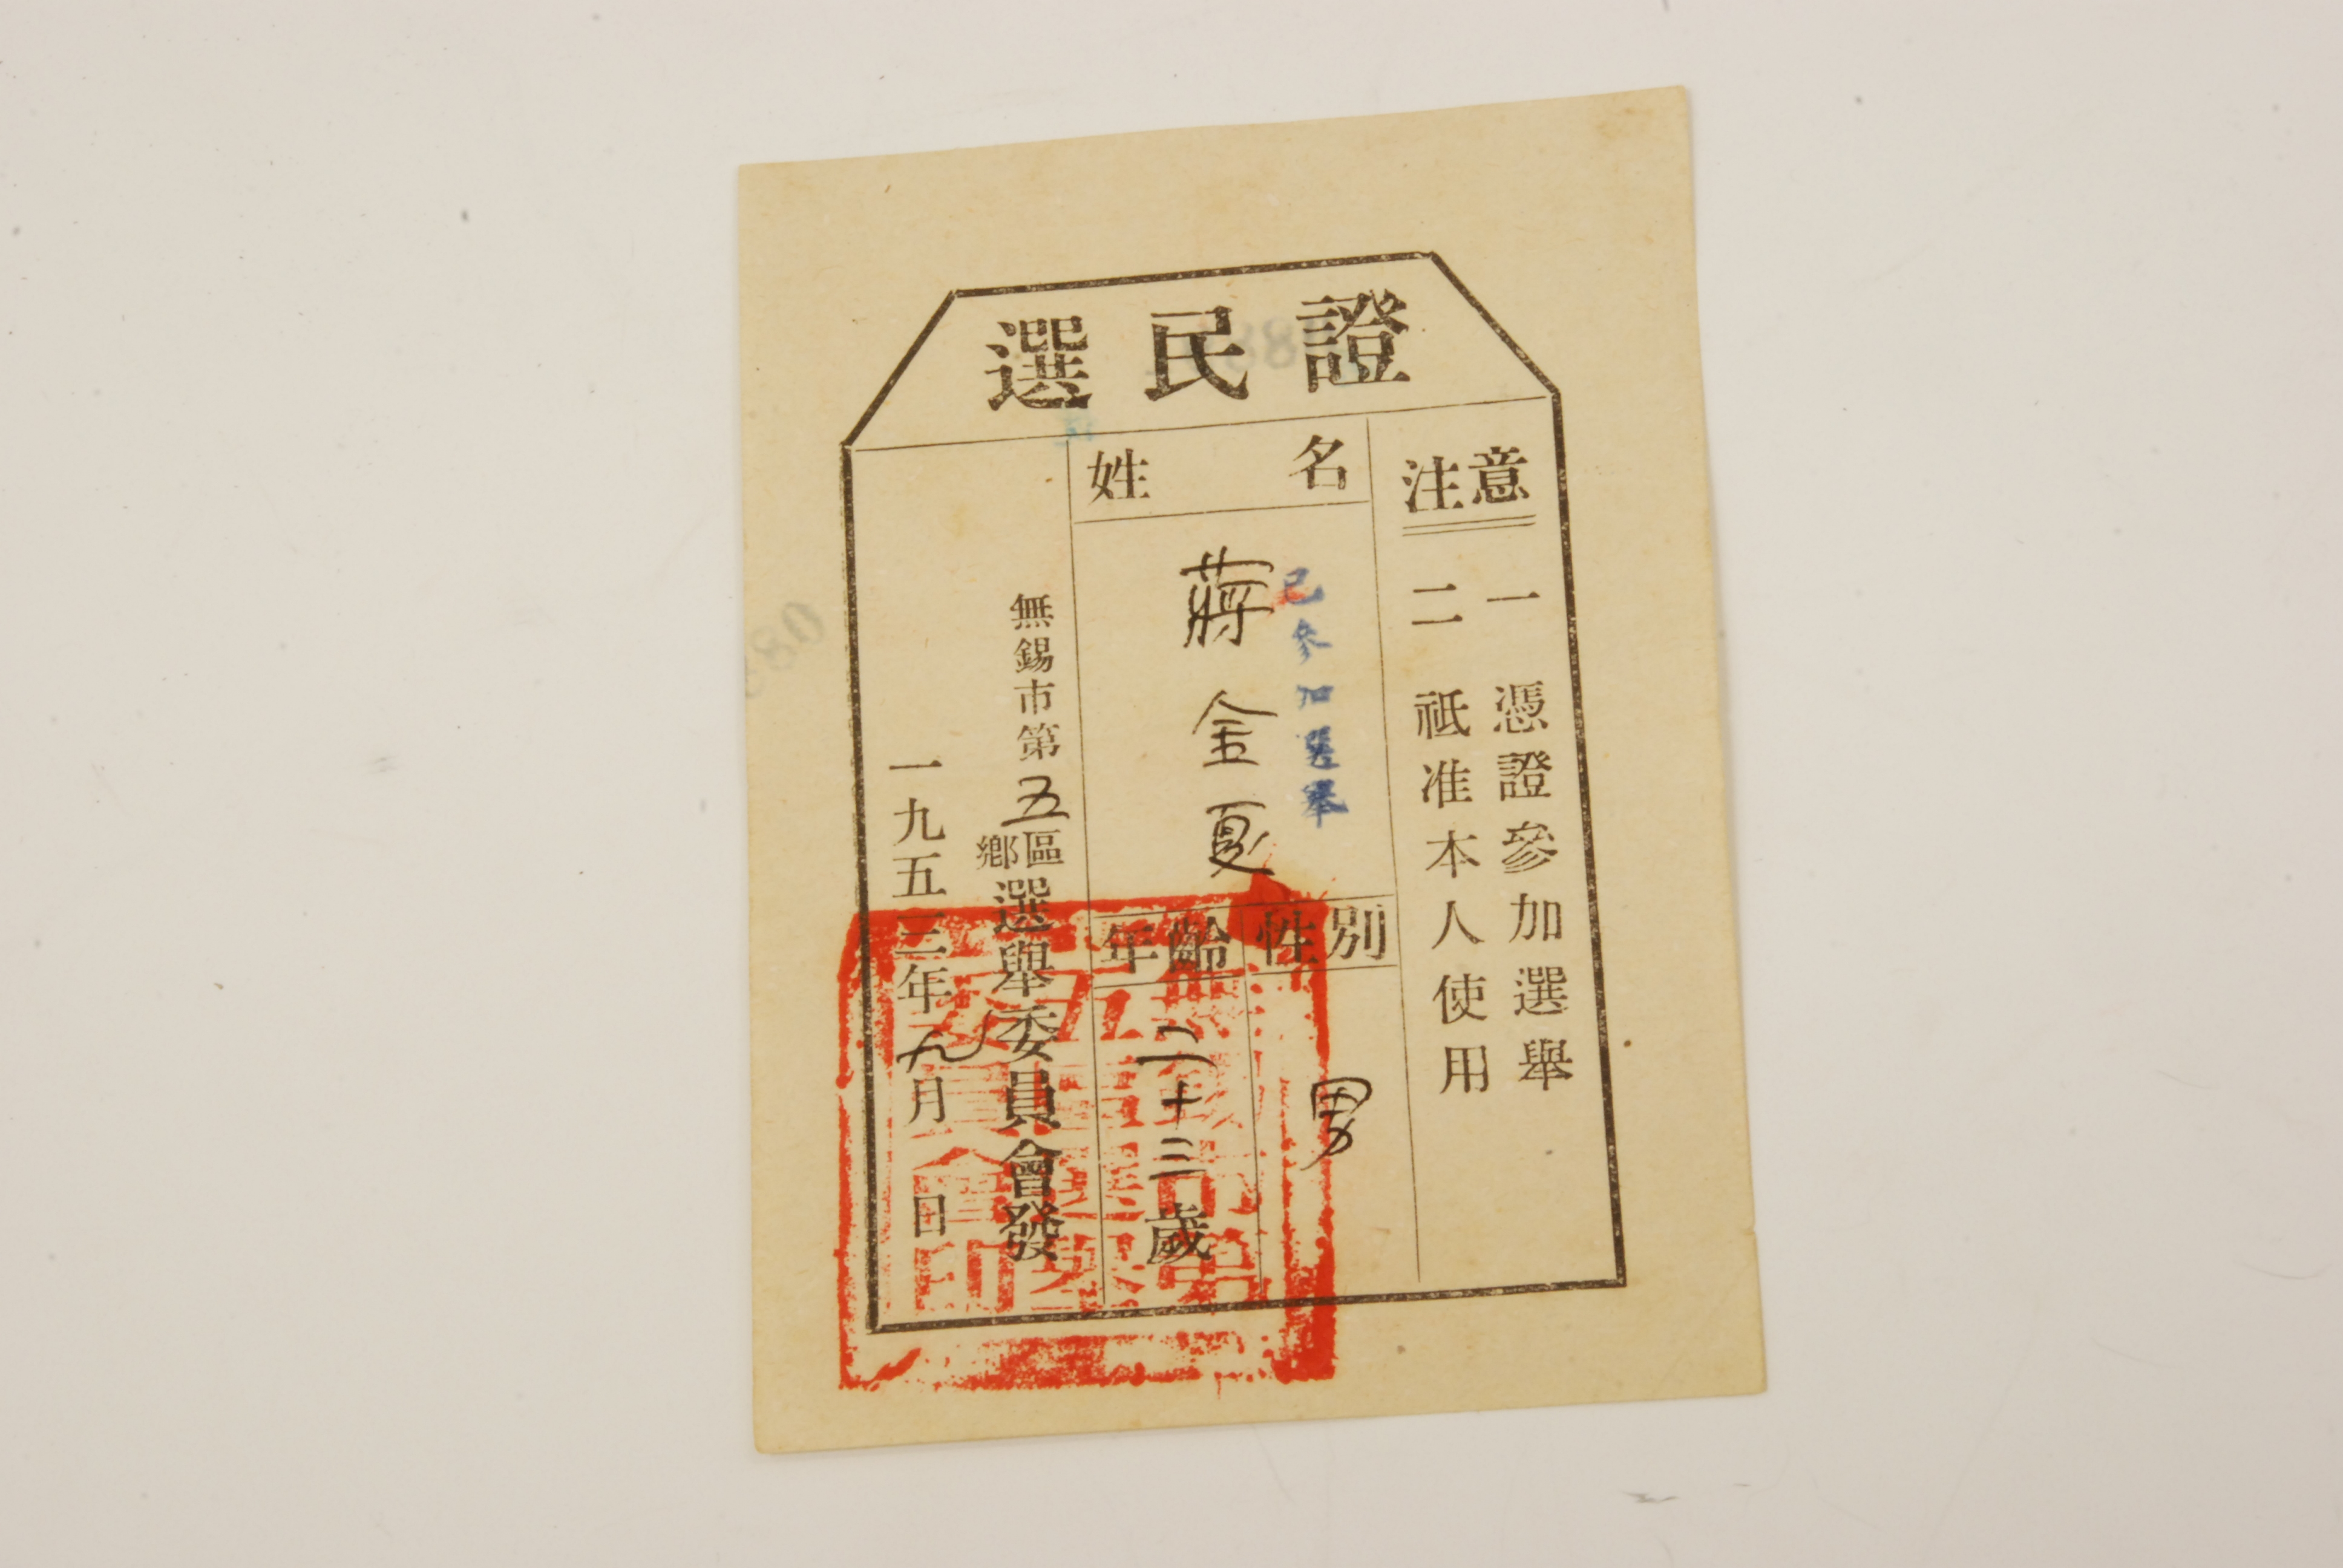 選民證
注意
一 憑證參加選舉
二 祇准本人使用
姓名
蔣金夏
已參加選舉
性別
男
年齡
二十三歲
無錫市第五區鄉選舉委員會發
一九五三年九月 日